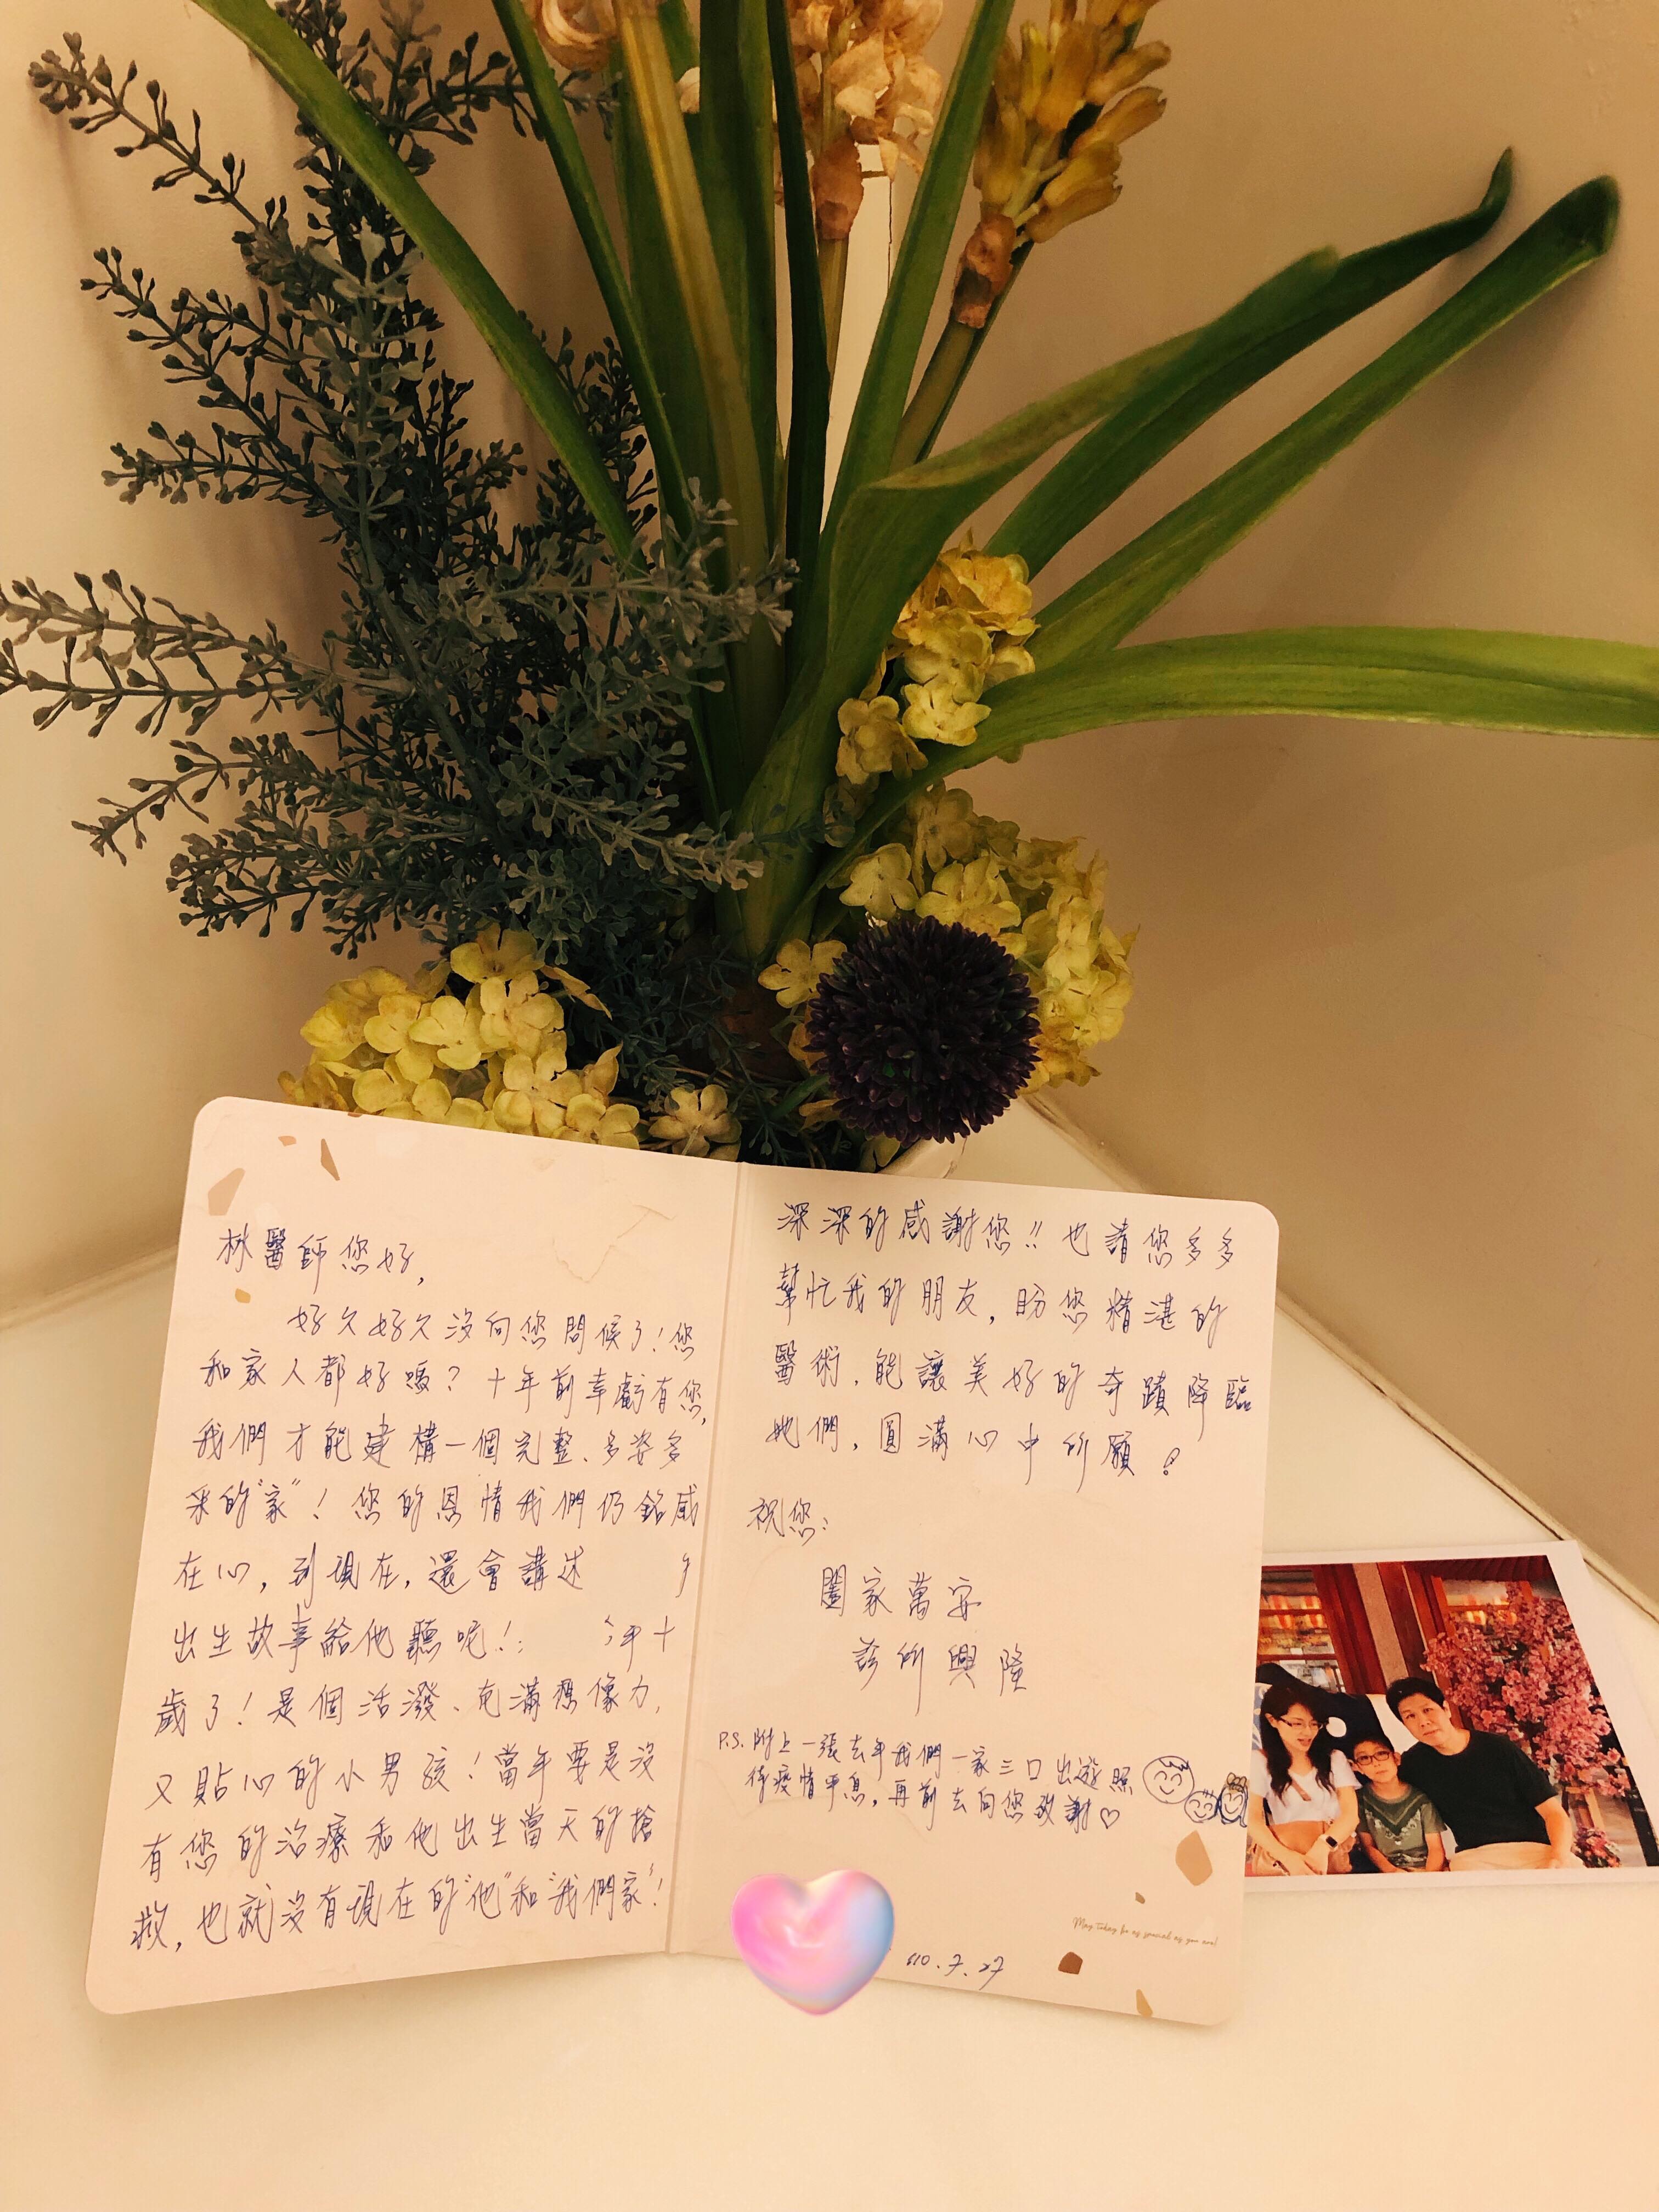 林醫師您好,
好久好久沒向您問候了!您
和家人都好嗎?十年前幸虧有您,
我們才能建構一個完整、多姿多
采的"家"!您的恩情我們仍銘感
在心,到現在,還會講述
出生故事給他聽呢!
年十
歲了!是個活潑、充滿想像力,
又貼心的小男孩!當年要是沒
有您的治療和他出生當天的搶
救,也就沒有現在的"他"和"我們家"!
深深的感謝您!!也請您多多
幫忙我的朋友,盼您精湛的
醫術,能讓美好的奇蹟降臨
她們,圓滿心中所願!
祝您:
闔家萬安
診所興隆
P.S. 附上一張去年我們一家三口出遊照
待疫情平息,再前去向您致謝♡
May today be as special as you are!
110.7.27